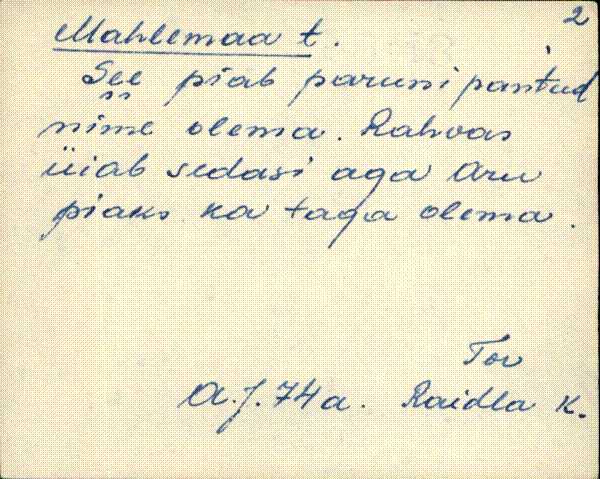 2
Mahlemaa t.
See piab paruni pantud
nime olema. Rahvas
üiab sedasi aga Aru
piaks ka taga olema.
Tor
A.J. 74 a. Raidla K.